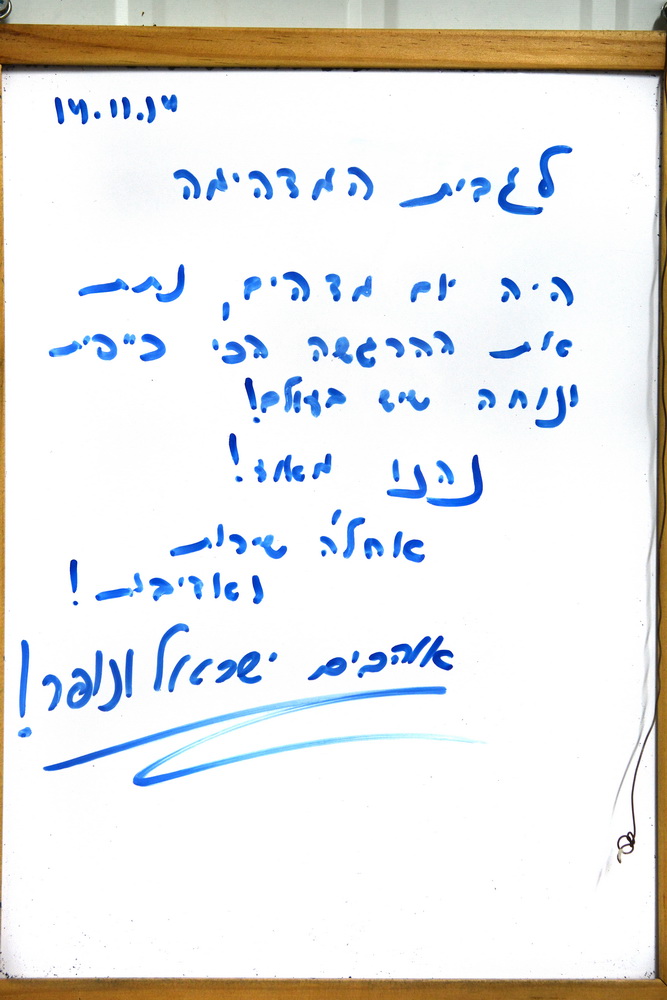 14.11.14
לגבית המדהימה
היה יום מדהים, נתת
את ההרגשה הכי כייפית
ונוחה שיש בעולם!
נהנו מאוד!
אחלה שירות
ואדיבות!
אוהבים ישראל ונופר!